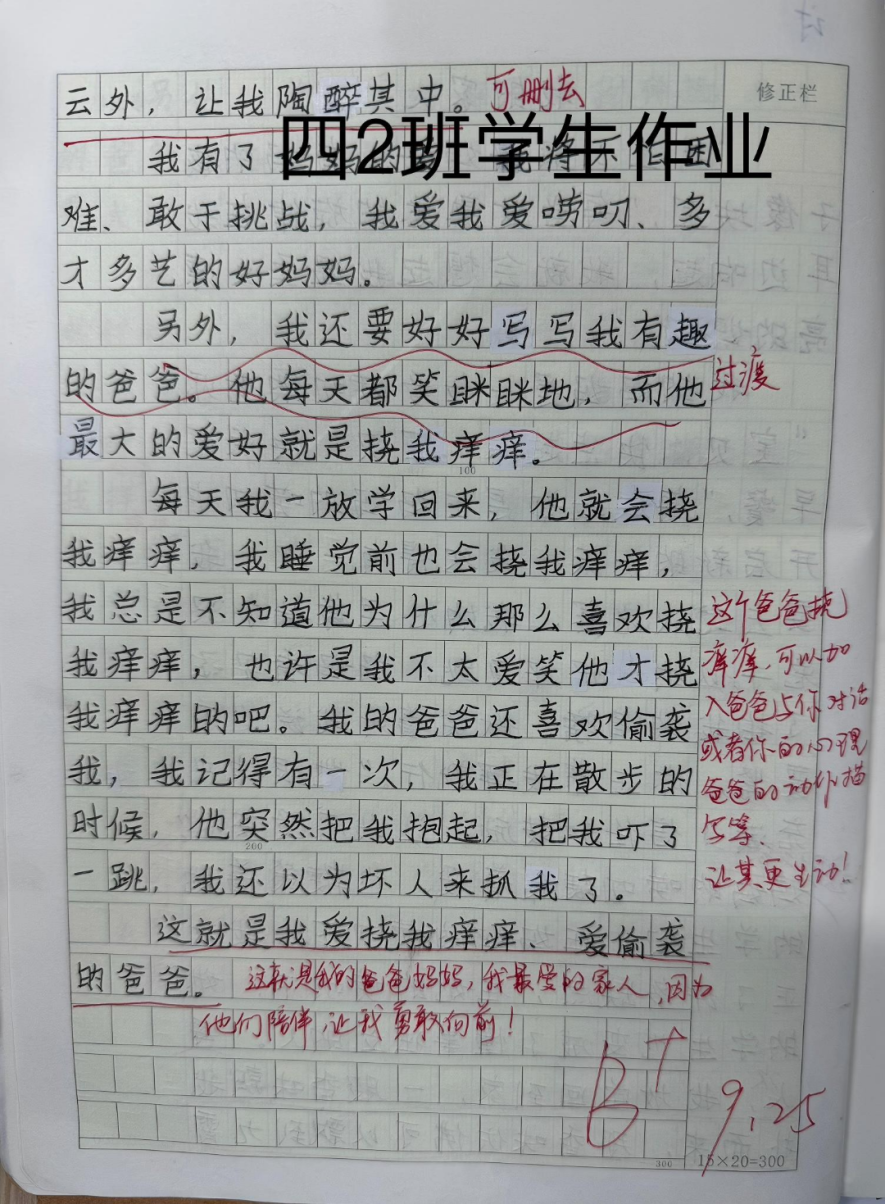 云外，让我陶醉其中。可删去
修正栏
四2班学生作业
我有了妈妈的 我将不怕困
难、敢于挑战，我爱我爱唠叨、多
才多艺的好妈妈。
另外，我还要好好写写我有趣
的爸爸。他每天都笑眯眯地，而他
过渡
最大的爱好就是挠我痒痒。
100
每天我一放学回来，他就会挠
我痒痒，我睡觉前也会挠我痒痒，
我总是不知道他为什么那么喜欢挠
我痒痒，也许是我不太爱笑他才挠
我痒痒的吧。我的爸爸还喜欢偷袭
我，我记得有一次，我正在散步的
时候，他突然把我抱起，把我吓了
200
一跳，我还以为坏人来抓我了。
这个爸爸挠
痒痒，可以加
入爸爸与你对话
或者你的心理
爸爸的动作描
写等、
让其更生动！
这就是我爱挠我痒痒、爱偷袭
的爸爸。
这就是我的爸爸妈妈，我最爱的家人，因为
他们陪伴，让我勇敢向前！
B+
9.25
300
15×20=300